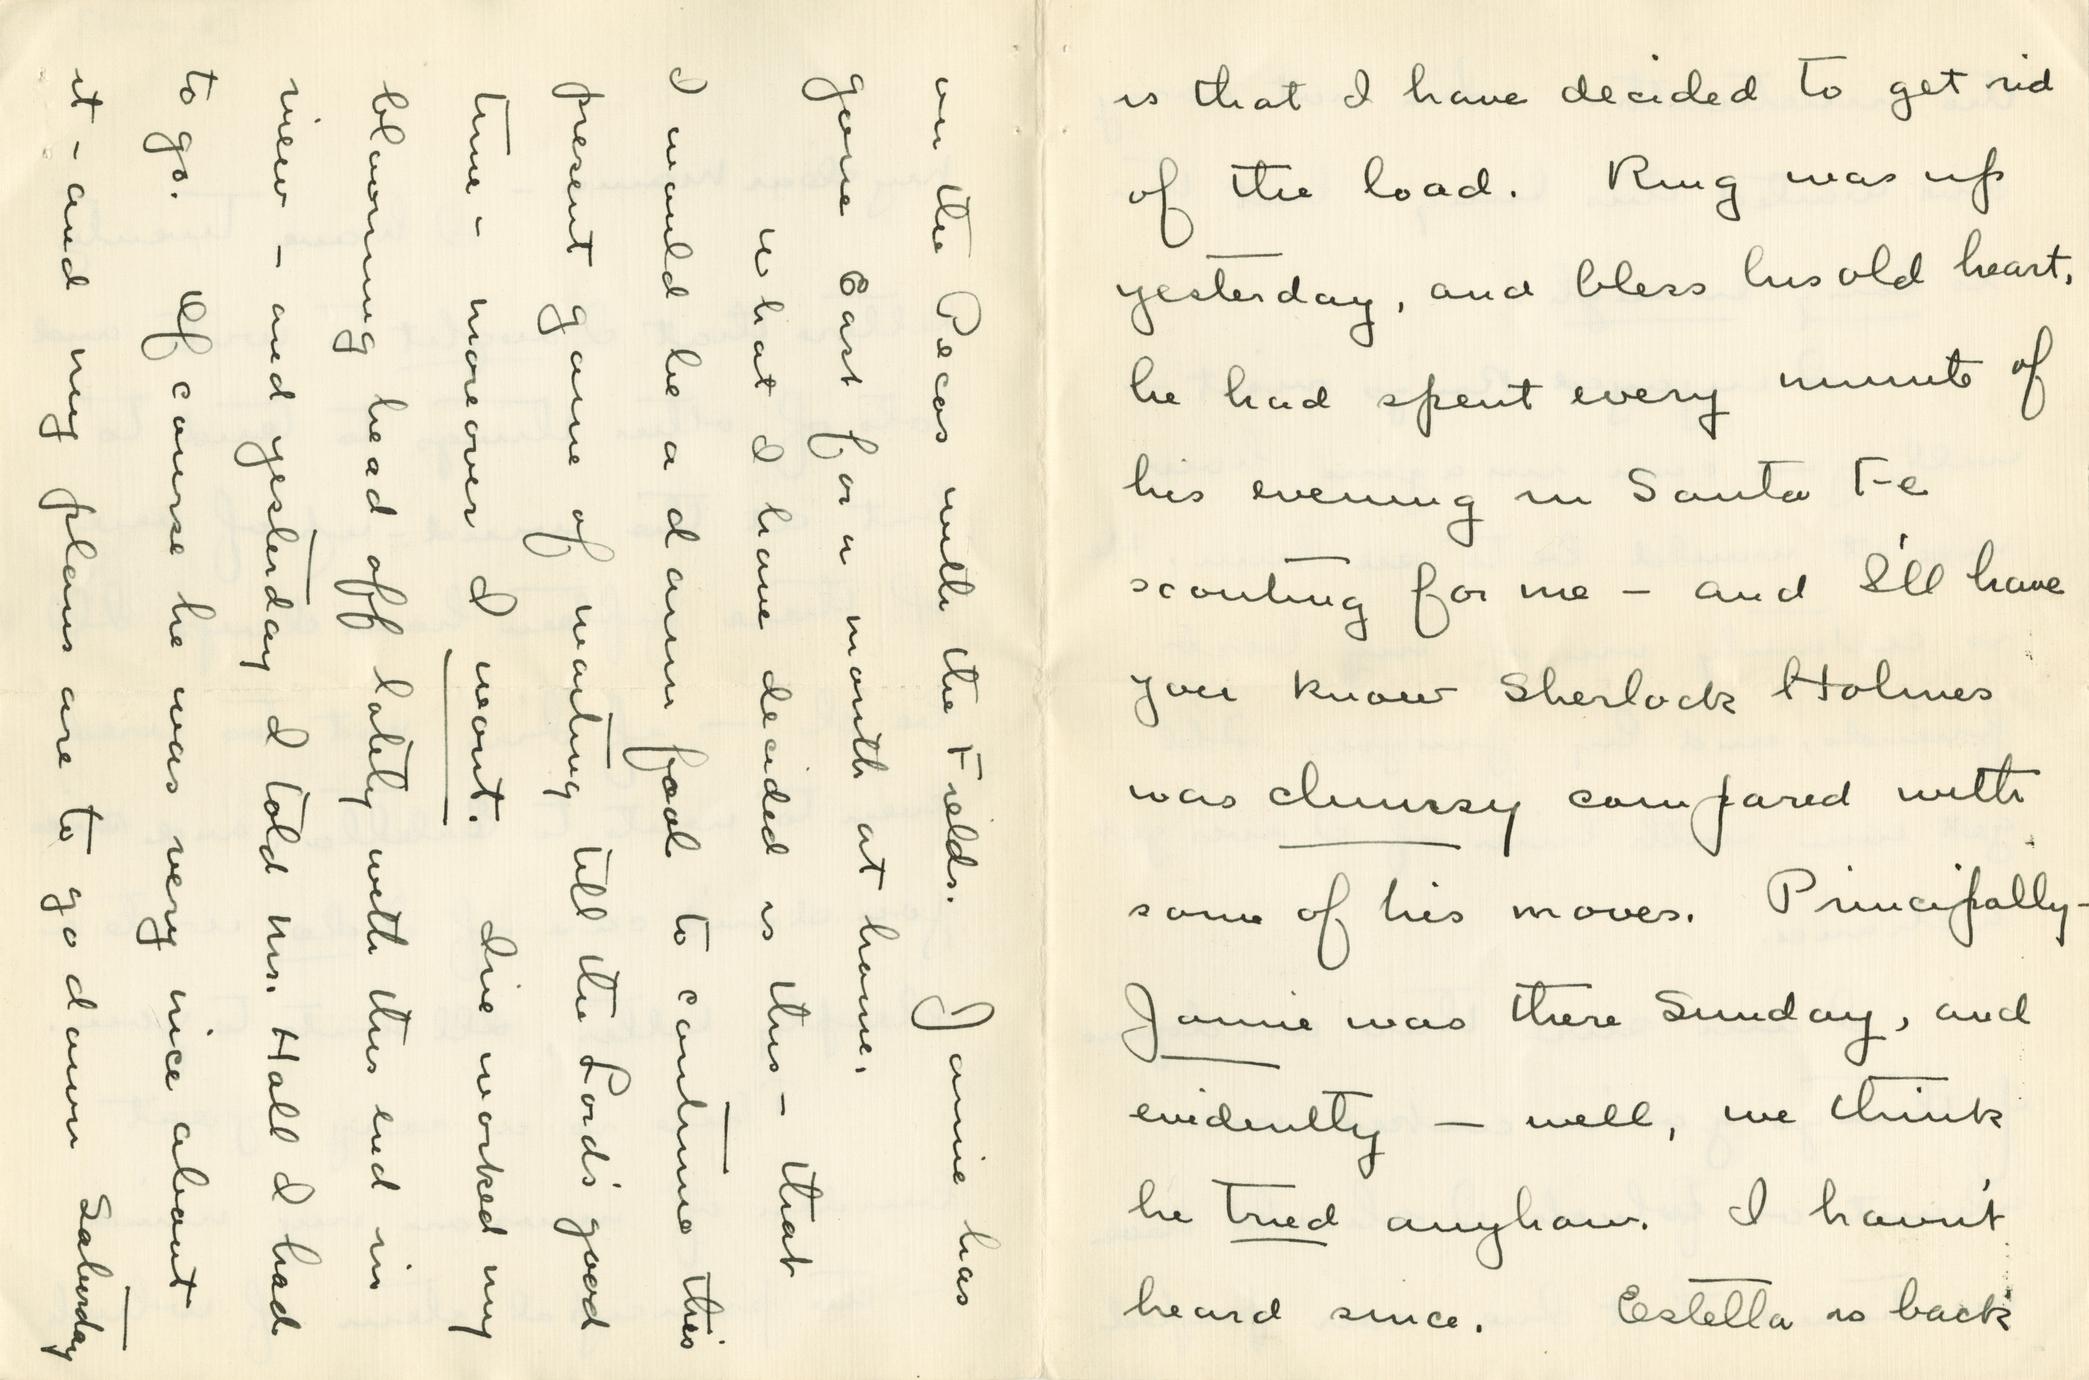 is that I have decided to get rid
of the load. Ring was up
yesterday, and bless his old heart,
he had spent every minute of
his evening in Santa Fe
scouting for me – and I'll have
you know Sherlock Holmes
was clumsy compared with
some of his moves. Principally –
Jamie was there Sunday, and
evidently – well, we think
he tried anyhow. I havn't
heard since. Estella is back
on the Pecos with the Fields. Jamie has
gone East for a month at home.
What I have decided is this – that
I would be a damn fool to continue this
present game of waiting till the Lord's good
time – moreover I wont. I've worked my
blooming head off lately with this end in
view – and yesterday I told Mr. Hall I had
to go. Of course he was very nice about
it – and my plans are to go down Saturday